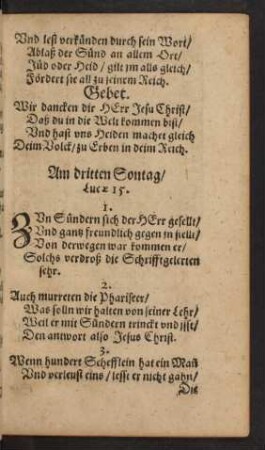 Vnd lest verkünden durch sein Wort/
Ablaß der Sünd an allem Ort/
Jüd oder Heid/ gilt jm alls gleich/
Fördert sie all zu seinem Reich.
Gebet.
Wir dancken dir HErr Jesu Christ/
Daß du in die Welt kommen bist/
Vnd hast vns Heiden machet gleich
Deim Volck/ zu Erben in deim Reich.
Am dritten Sontag/
Lucæ 15.
1.
ZVn Sündern sich der HErr gesellt/
Vnd gantz freundlich gegen jn stellt/
Von derwegen war kommen er/
Solchs verdroß die Schrifftgelerten
sehr.
2.
Auch murreten die Phariseer/
Was solln wir halten von seiner Lehr/
Weil er mit Sündern trinckt vnd isst/
Den antwort also Jesus Christ.
3.
Wenn hundert Schefflein hat ein Mañ
Vnd verleust eins/ lesst er nicht gahn/
Die